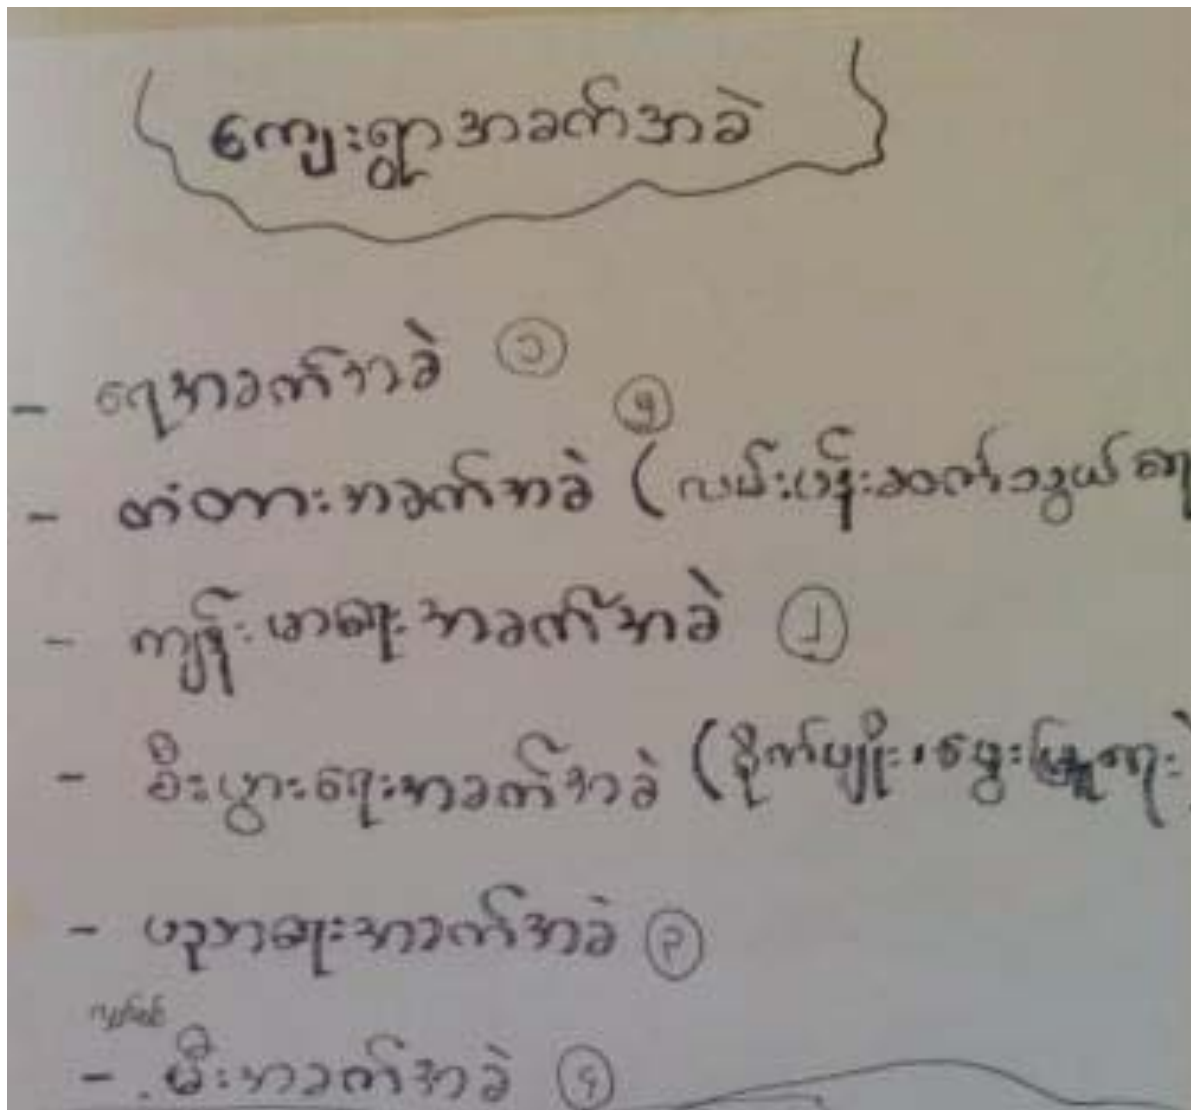 ကျေးရွာအခက်အခဲ
- ရေအခက်အခဲ ၁
- တံတားအခက်အခဲ ၅ (လမ်းပန်းဆက်သွယ်ရေ
- ကျန်းမာရေးအခက်အခဲ ၂
- စီးပွားရေးအခက်အခဲ (စိုက်ပျိုး၊မွေးမြူရေး)
- ပညာရေးအခက်အခဲ ၃
- မီးအခက်အခဲ ၄